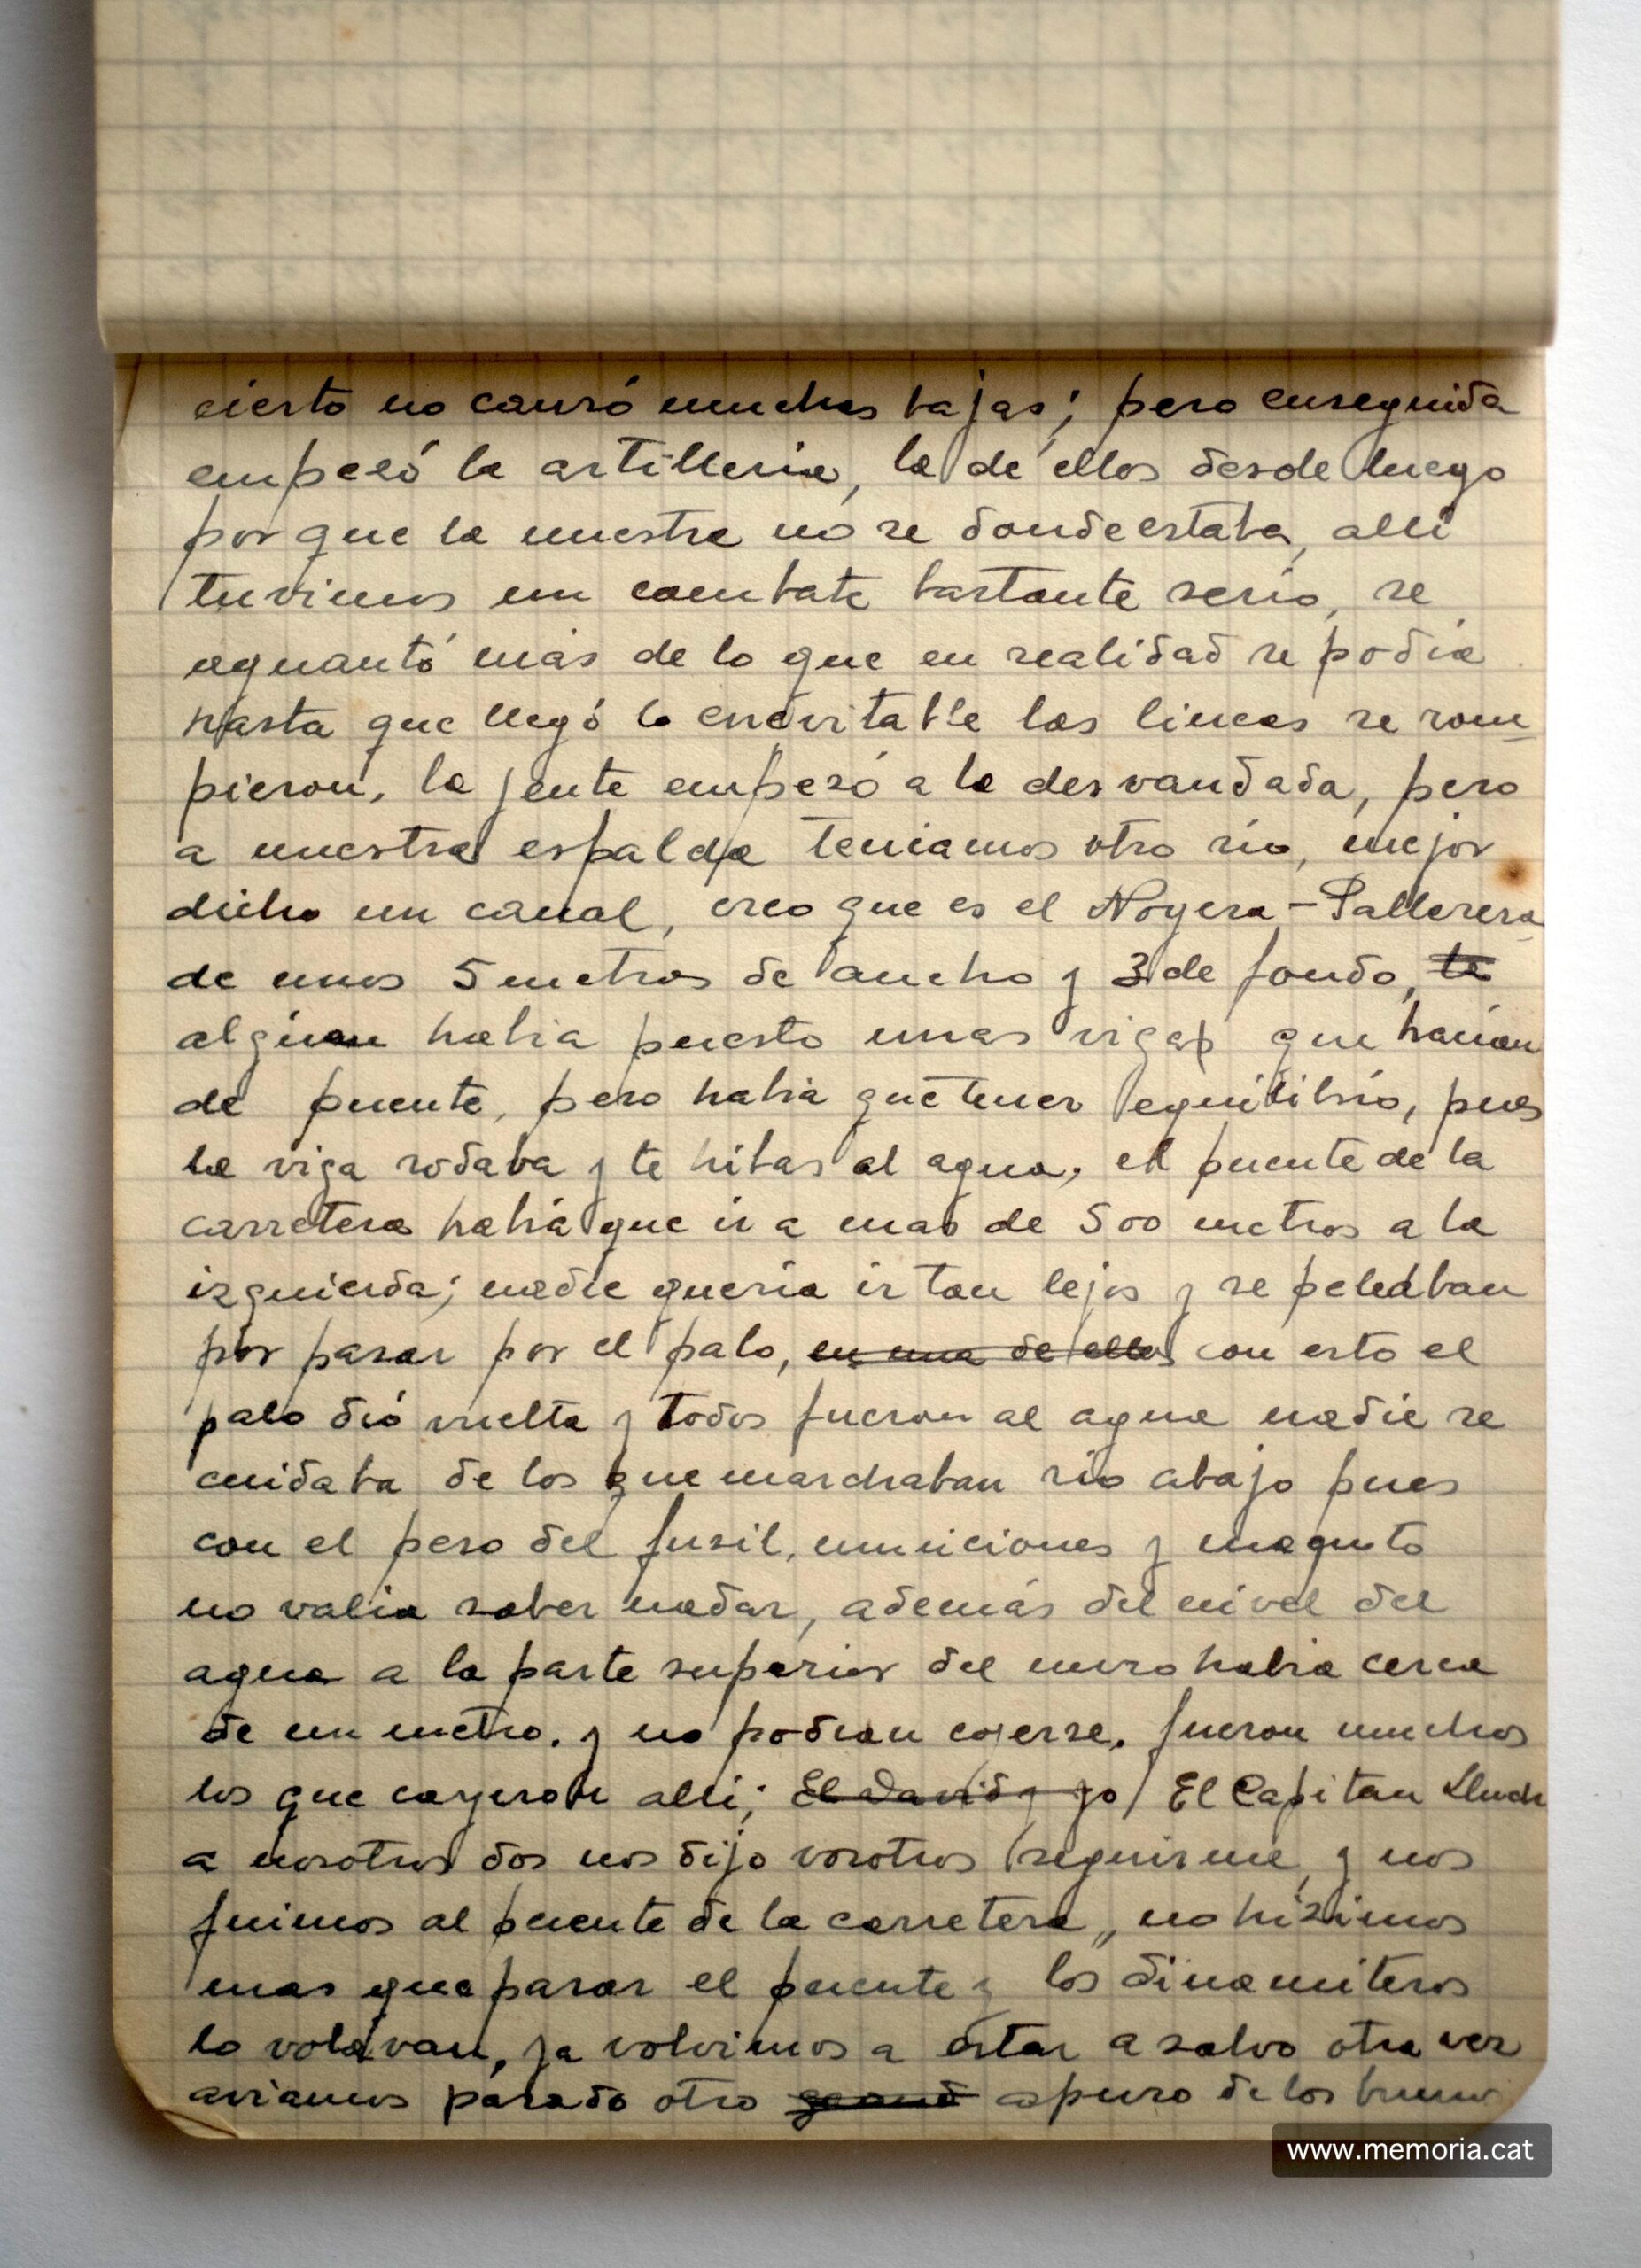 cierto no causó muchas bajas; pero enseguida
empezó la artilleria, la de ellos desde luego
por que la nuestra no se donde estaba, alli
tuvimos un combate bastante serio, se
aguantó más de lo que en realidad se podia
hasta que llegó lo enevitable las lineas se rom
pieron, la jente empezó a la desvandada, pero
a nuestra espalda teniamos otro rio, mejor
dicho un canal, creo que es el Noguera-Pallaresa
de unos 5 metros de ancho y 3 de fondo, te
alguien habia puesto unas vigas que hacian
de puente, pero habia que tener equilibrio, pues
la viga rodaba y te hibas al agua, el puente de la
carretera habia que ir a mas de 500 metros a la
izquierda; nadie queria ir tan lejos y se peleaban
por pasar por el palo, en una de ellas con esto el
palo dió vuelta y todos fueron al agua nadie se
cuidaba de los que marchaban rio abajo pues
con el peso del fusil, municiones y macuto
no valia saber nadar, además del nivel del
agua a la parte superior del muro habia cerca
de un metro. y no podian cojerse. fueron muchos
los que cayeron alli; El David y yo El Capitan Lluch
a nosotros dos nos dijo vosotros seguirme, y nos
fuimos al puente de la carretera, no hizimos
mas que pasar el puente y los dinamiteros
lo volavan, ya volvimos a estar a salvo otra vez
aviamos pasado otro apuro de los buenos
www.memoria.cat